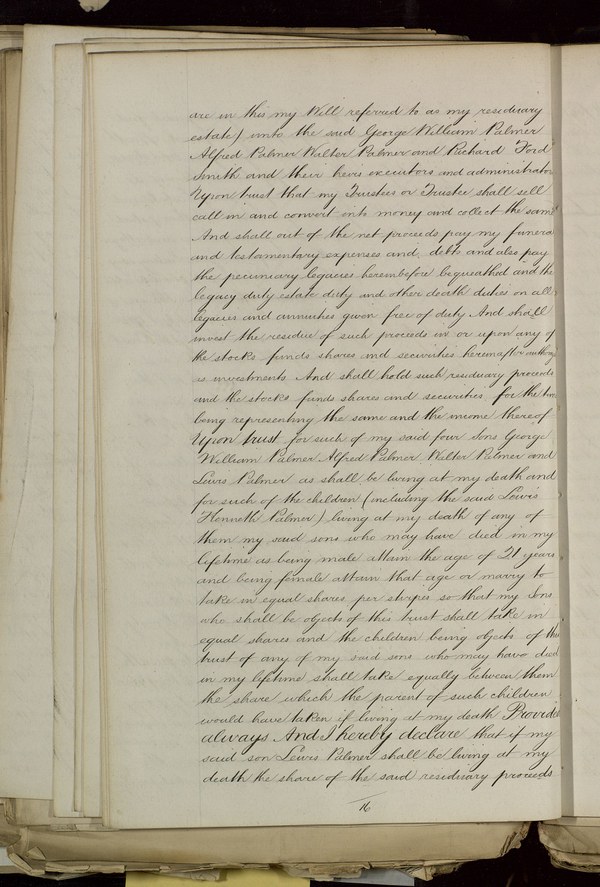 are in this my Will referred to as my residuary
estate) unto the said George William Palmer
Alfred Palmer Walter Palmer and Richard Ford
Smith and their heirs executors and administrators
Upon trust that my Trustees or Trustee shall sell
call in and convert into money and collect the same
And shall out of the net proceeds pay my funeral
and testamentary expenses and debts and also pay
the pecuniary legacies hereinbefore bequeathed and the
legacy duty estate duty and other death duties on all
legacies and annuities given free of duty And shall
invest the residue of such proceeds in or upon any of
the stocks funds shares and securities hereinafter
as investments And shall hold such residuary proceeds
and the stocks funds shares and securities for the time
being representing the same and the income thereof
Upon trust for such of my said four Sons George
William Palmer Alfred Palmer Walter Palmer and
Lewis Palmer as shall be living at my death and
for such of the children (including the said Lewis
Palmer) living at my death of any of
them my said sons who may have died in my
lifetime as being male attain the age of 21 years
and being female attain that age or marry to
take in equal shares per stirpes so that my Sons
who shall be objects of this trust shall take in
equal shares and the children being objects of this
trust of any of my said sons who may have died
in my lifetime shall take equally between them
the share which the parent of such children
would have taken if living at my death Provided
always And I hereby declare that if my
said son Lewis Palmer shall be living at my
death the share of the said residuary proceeds
16